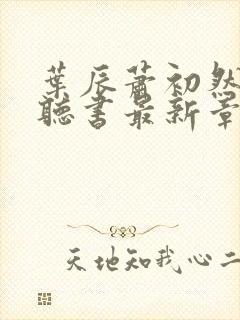 葉辰蕭初然
聽書最新章
天地知我心二